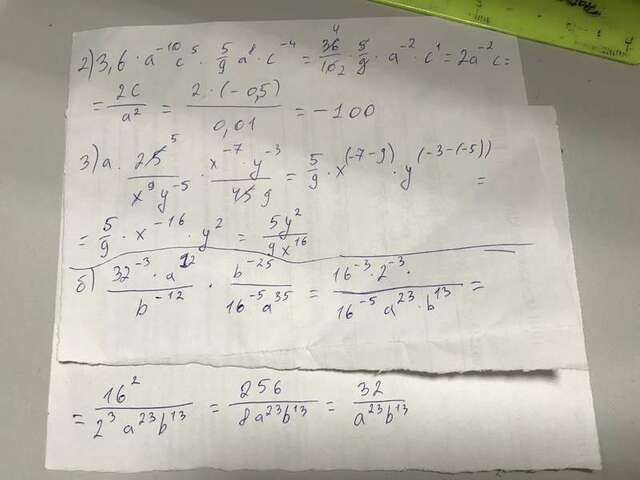 2) 3,6 · a⁻¹⁰ c⁵ · 5/9 a⁸ · c⁻⁴ = 36⁴/10₂ · 5/9 · a⁻² · c¹ = 2a⁻² c =
= 2c/a² = 2 · (−0,5)/0,01 = −100
3) a. 25⁵/x⁹y⁻⁵ · x⁻⁷ · y⁻³/45 9 = 5/9 · x⁽⁻⁷⁻⁹⁾ · y⁽⁻³⁻⁽⁻⁵⁾⁾ =
= 5/9 · x⁻¹⁶ · y² = 5y²/9x¹⁶
б) 32⁻³ · a¹²/b⁻¹² · b⁻²⁵/16⁻⁵a³⁵ = 16⁻³ · 2⁻³ ·/16⁻⁵ a²³ · b¹³ =
= 16²/2³ a²³b¹³ = 256/8a²³b¹³ = 32/a²³b¹³